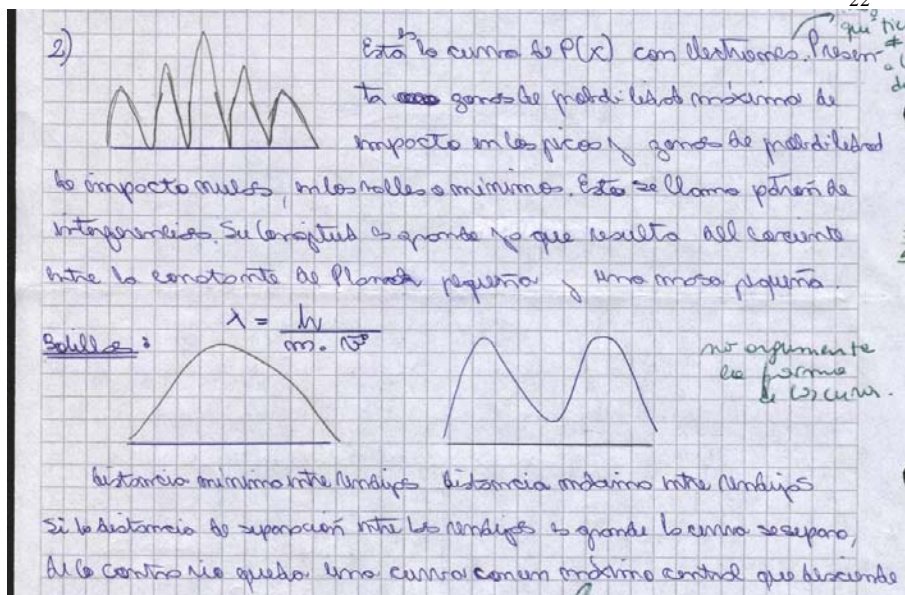 22
2) Esta es la curva de P(x) con electrones. Presen-
que tie
ta zonas de probabilidad máxima de
impacto en los picos y zonas de probabilidad
de impacto nulas, en los valles o mínimos. Esto se llama patrón de
interferencias. Su longitud es grande ya que resulta del cociente
entre la constante de Planck pequeña y una masa pequeña.
λ = h / m. v
Bolillas:
no argumenta
la forma
de las curvas.
distancia mínima entre rendijas distancia máxima entre rendijas
si la distancia de separación entre las rendijas es grande la curva se separa,
de lo contrario queda una curva con un máximo central que desciende